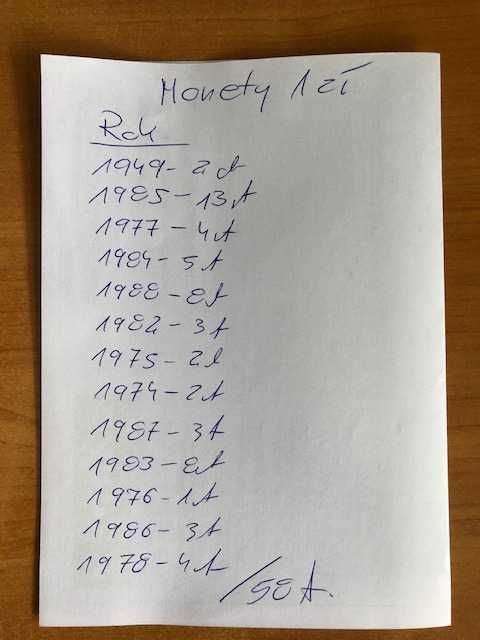 Monety 1 zł
Rok
1949 - 2 st
1985 - 13 st
1977 - 4 st
1984 - 5 st
1988 - 8 st
1982 - 3 st
1975 - 2 st
1974 - 2 st
1987 - 3 st
1983 - 8 st
1976 - 1 st
1986 - 3 st
1978 - 4 st
/58 st.